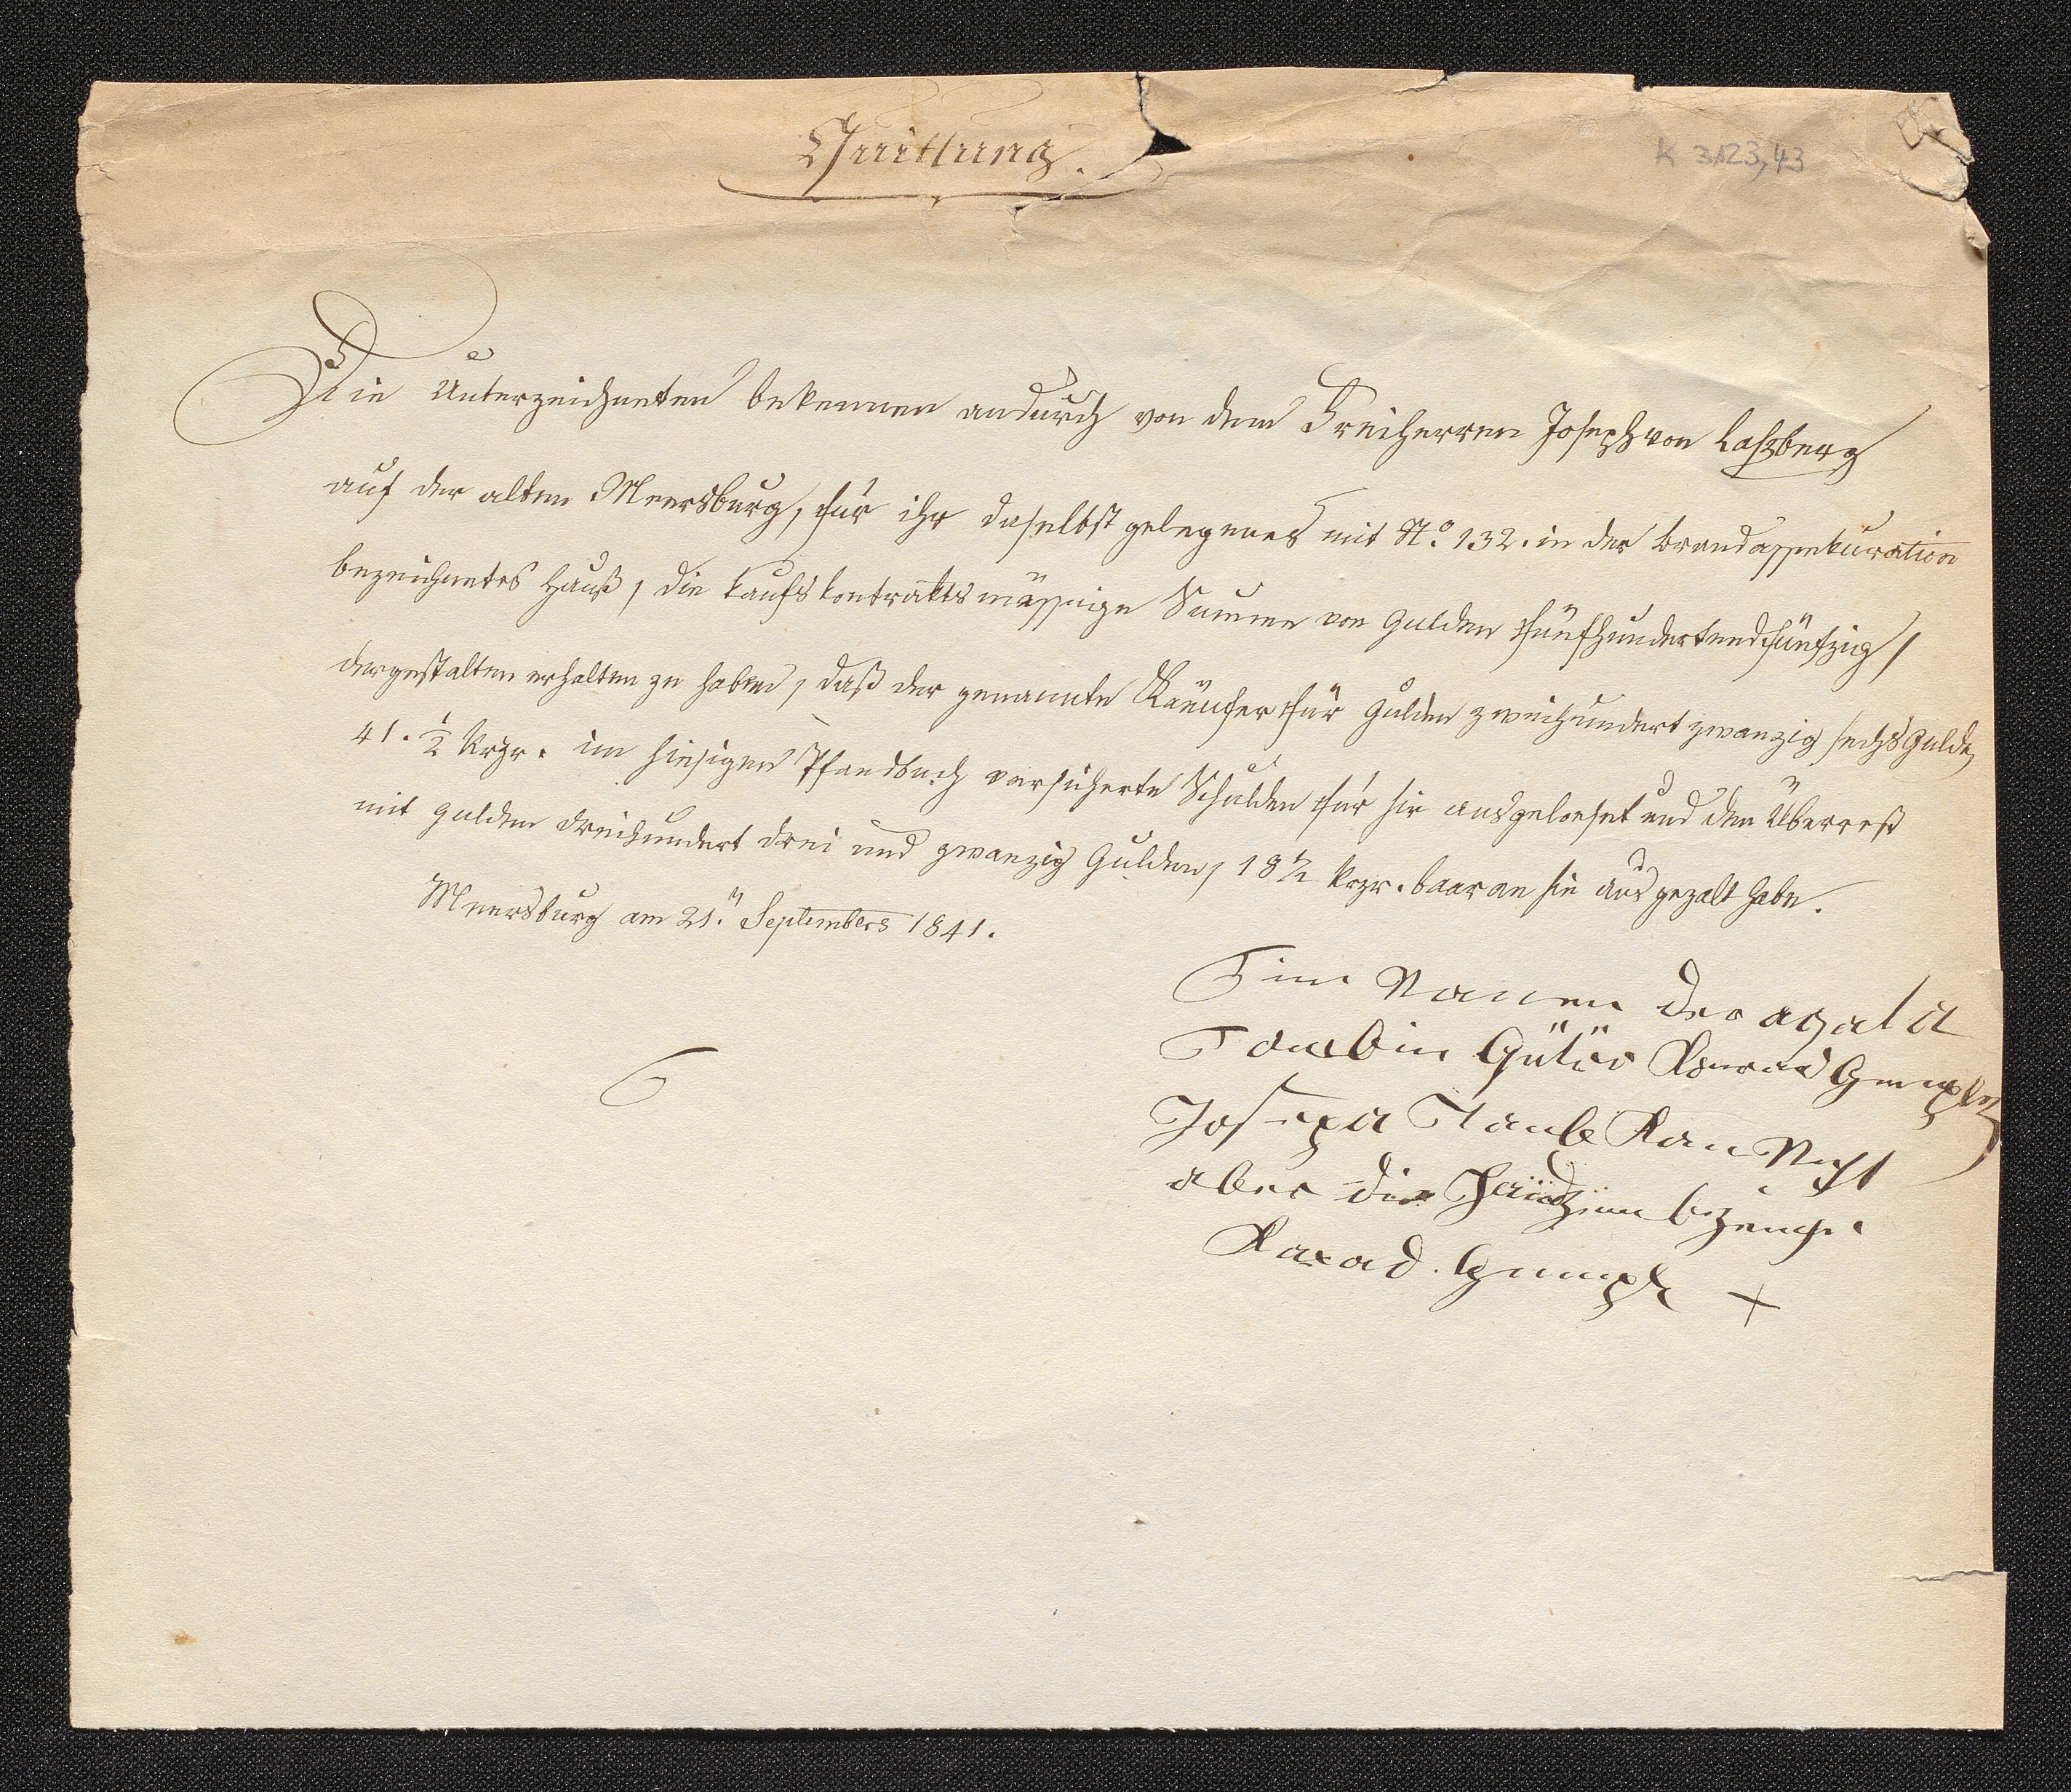 Quittung.
K 3123,43
Die Unterzeichneten bekennen andurch von dem Freiherren Joseph von Laßberg
auf der alten Meersburg, für ihr daselbst gelegenes mit No. 132. in der Brandassekuration
bezeichnetes Hauß, die kaufskontraktsmässige Summe von Gulden fünfhundertundfünfzig,
dergestalten erhalten zu haben, daß der genannte Käuffer für Gulden zweihundert zwanzig sechs Gulden
41. 1/2 Krzr. im hiesigen Pfandbuch versicherte Schulden für sie ausgeloeset und den Überrest
mit Gulden dreihundert drei und zwanzig Gulden, 18 1/2 krzr. baar an sie ausgezalt habe.
Meersburg am 21.n Septembers 1841.
Im Namen der agata
Taubin
Josepa Taube Kan Nicht
aber die bezeugt
Gumph +